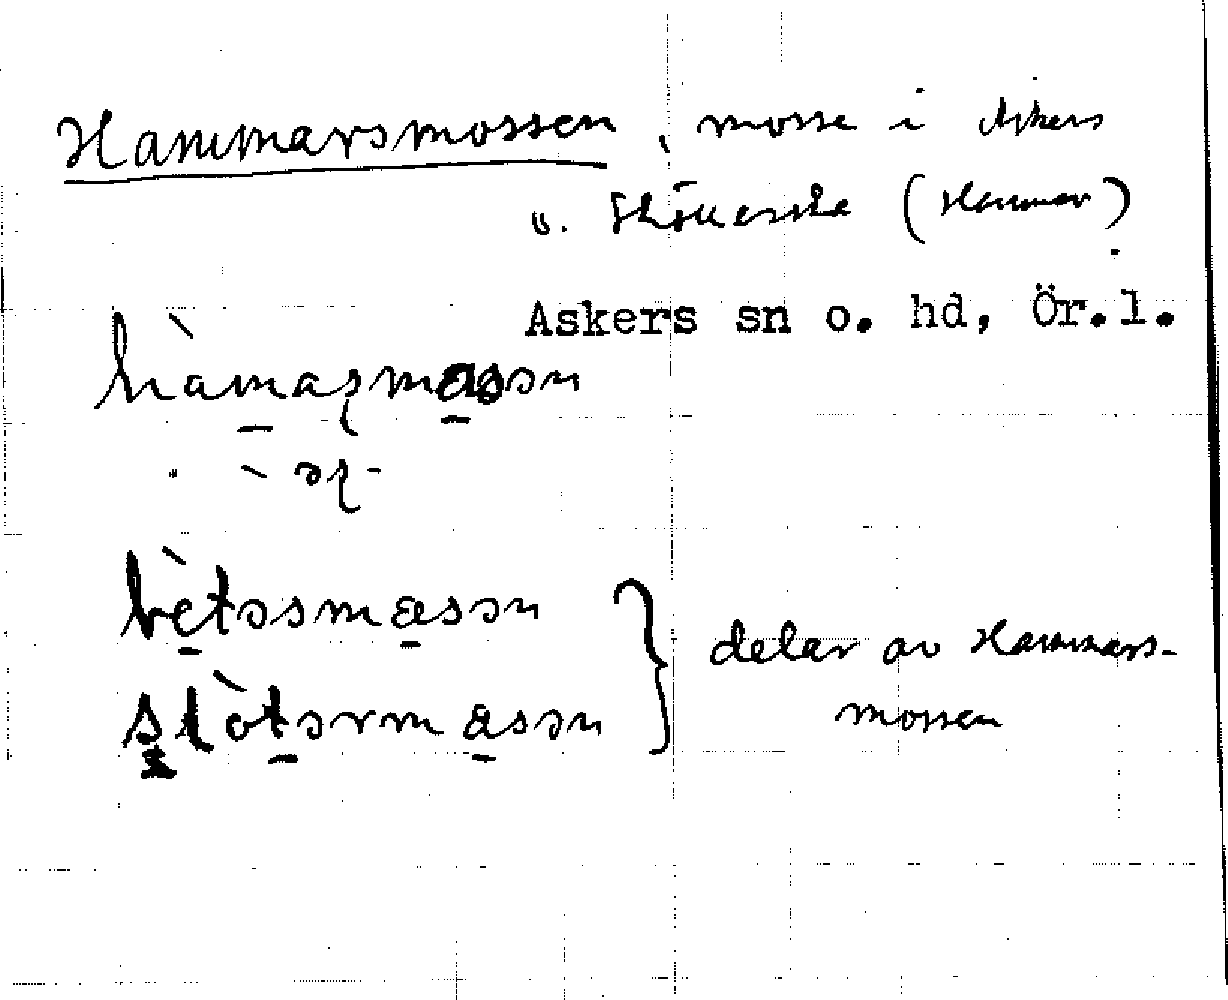 Hammarsmossen, mosse i Askers
o. Sköllersta (Hammar)
Askers sn o. hd, Ör.l.
hàmaʂmasən
- əʂ -
bètəsmasən
slòtərmasən
delar av Hammars-
mossen